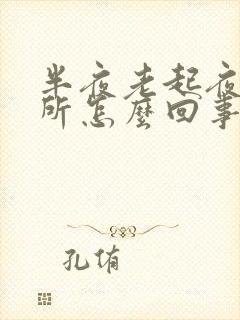 半夜老起夜
所怎麼回事
孔侑